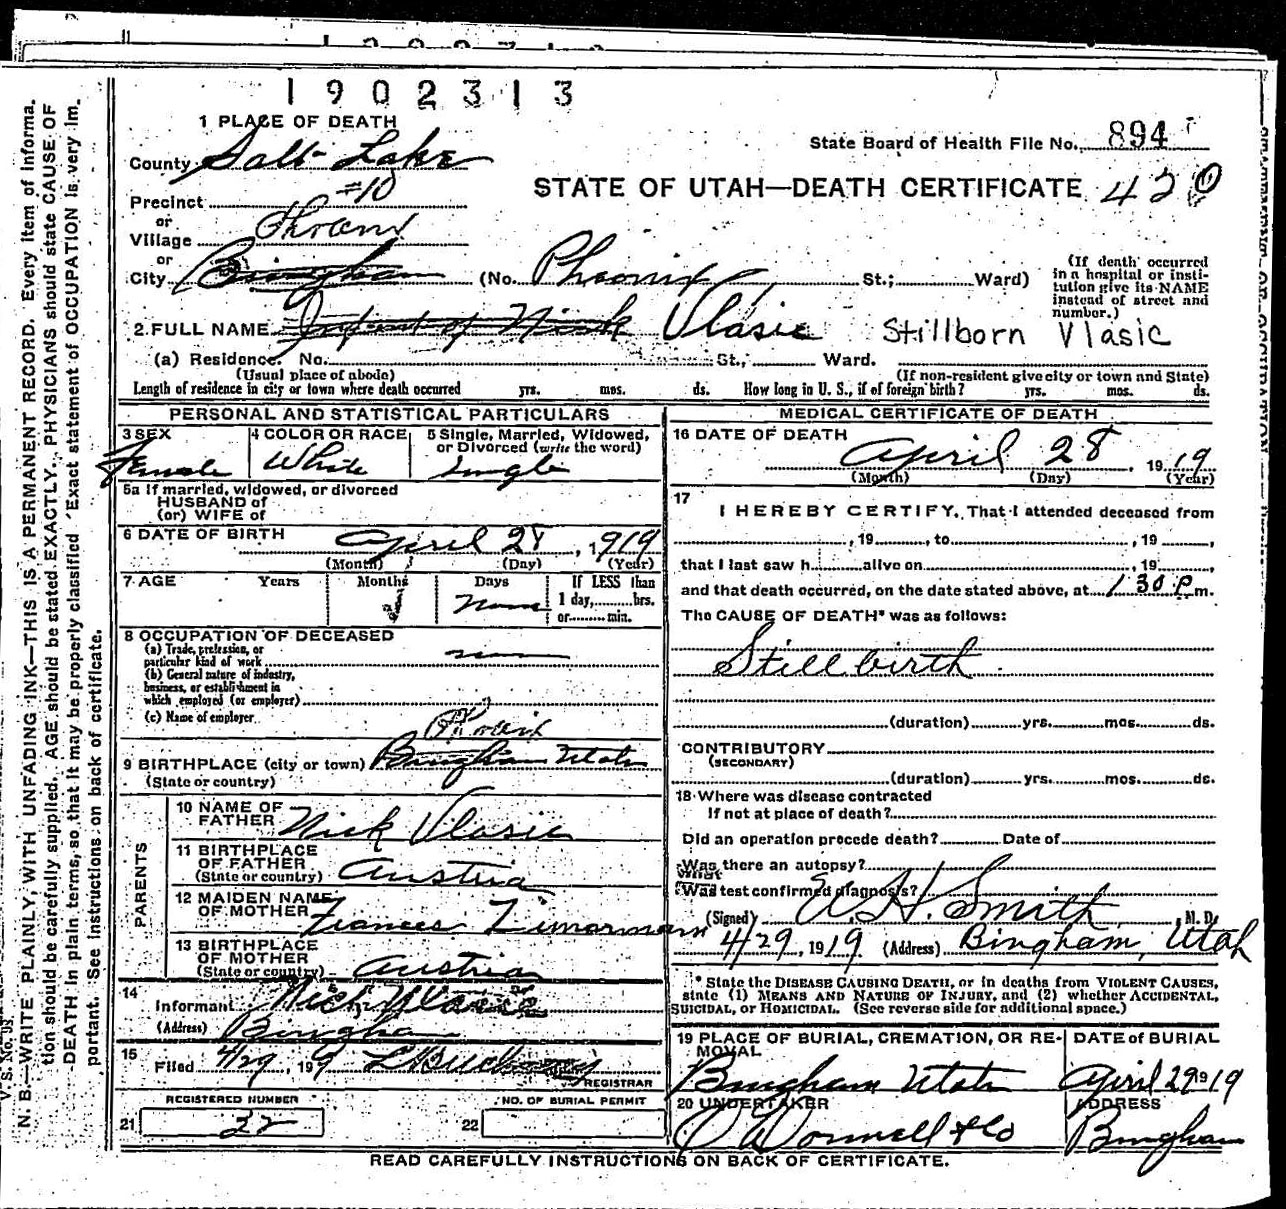 1902313
1 PLACE OF DEATH
State Board of Health File No. 894
County Salt Lake
STATE OF UTAH—DEATH CERTIFICATE 420
Precinct #10
or
Village
or
City Bingham (No. Pheonix St.; Ward)
(If death occurred in a hospital or insti-
tution give its NAME
instead of street and
number.)
2 FULL NAME Infant of Nick Vlasic Stillborn Vlasic
(a) Residence. No. St., Ward.
(Usual place of abode) (If non-resident give city or town and State)
Length of residence in city or town where death occurred yrs. mos. ds. How long in U. S., if of foreign birth? yrs. mos. ds.
PERSONAL AND STATISTICAL PARTICULARS
3 SEX Female
4 COLOR OR RACE White
5 Single, Married, Widowed,
or Divorced (write the word)
Single
5a If married, widowed, or divorced
HUSBAND of
(or) WIFE of
6 DATE OF BIRTH April 28, 1919
(Month) (Day) (Year)
7 AGE Years Months Days If LESS than
1 day, hrs.
or min.
None
8 OCCUPATION OF DECEASED
(a) Trade, profession, or
particular kind of work
(b) General nature of industry,
business, or establishment in
which employed (or employer)
(c) Name of employer
9 BIRTHPLACE (city or town) Bingham Utah
(State or country)
PARENTS
10 NAME OF
FATHER Nick Vlasic
11 BIRTHPLACE
OF FATHER
(State or country) Austria
12 MAIDEN NAME
OF MOTHER Frances Zimormann
13 BIRTHPLACE
OF MOTHER
(State or country) Austria
14
Informant Nick Vlasic
(Address) Bingham
15
Filed 4/29, 19 9
REGISTRAR
REGISTERED NUMBER
21 32
NO. OF BURIAL PERMIT
22
MEDICAL CERTIFICATE OF DEATH
16 DATE OF DEATH
April 28, 1919
(Month) (Day) (Year)
17
I HEREBY CERTIFY, That I attended deceased from
, 19 , to , 19 ,
that I last saw h alive on , 19 ,
and that death occurred, on the date stated above, at 1 30 P. m.
The CAUSE OF DEATH* was as follows:
Still birth
(duration) yrs. mos. ds.
CONTRIBUTORY
(SECONDARY)
(duration) yrs. mos. ds.
18 Where was disease contracted
If not at place of death?
Did an operation precede death? Date of
Was there an autopsy?
What
Was test confirmed diagnosis?
(Signed) A. H. Smith, M. D.
4/29, 1919 (Address) Bingham, Utah
* State the DISEASE CAUSING DEATH, or in deaths from VIOLENT CAUSES,
state (1) MEANS AND NATURE OF INJURY, and (2) whether ACCIDENTAL,
SUICIDAL, or HOMICIDAL. (See reverse side for additional space.)
19 PLACE OF BURIAL, CREMATION, OR RE-
MOVAL
Bingham Utah
DATE of BURIAL
April 29 1919
20 UNDERTAKER
O'Donnell & Co
ADDRESS
Bingham
READ CAREFULLY INSTRUCTIONS ON BACK OF CERTIFICATE.
N. B.—WRITE PLAINLY, WITH UNFADING INK—THIS IS A PERMANENT RECORD. Every item of informa-
tion should be carefully supplied. AGE should be stated EXACTLY. PHYSICIANS should state CAUSE OF
DEATH in plain terms, so that it may be properly classified. Exact statement of OCCUPATION is very im-
portant. See instructions on back of certificate.